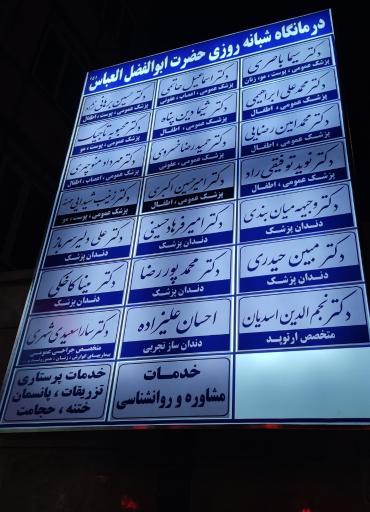 درمانگاه شبانه روزی حضرت ابوالفضل العباس (ع)
دکتر سیما باصری
پزشک عمومی ، پوست ، مو، زنان
دکتر اسماعیل حاتمی
پزشک عمومی ، اعصاب ، عفونی
دکتر حسین
پزشک عمومی ، پوست ، اطفال
دکتر محمدعلی ابراهیمی
پزشک عمومی ، اطفال
دکتر شیما دین پناه
پزشک عمومی ، اطفال
دکتر محبوبه تاجیک
پزشک عمومی ، پوست ، مو
دکتر محمدامین رضایی
پزشک عمومی ، اطفال
دکتر حمیدرضا خسروی
پزشک عمومی ، عفونی
دکتر مهرداد منوچهری
پزشک عمومی ، اعصاب ، اطفال
دکتر نوید توفیقی راد
پزشک عمومی ، اطفال
دکتر امیرحسین اکبری
پزشک عمومی ، اطفال
دکتر
پزشک عمومی ، پوست ، مو
دکتر وجیهه میان بندی
دندان پزشک
دکتر امیر فرهاد حسینی
دندان پزشک
دکتر علی دلیر سرباز
دندان پزشک
دکتر مبین حیدری
دندان پزشک
دکتر محمد پوررضا
دندان پزشک
دکتر مینا کاخکی
دندان پزشک
دکتر نجم الدین اسدیان
متخصص ارتوپد
احسان علیزاده
دندان ساز تجربی
دکتر سارا سعیدی
متخصص جراحی عمومی
خدمات
مشاوره و روانشناسی
خدمات پرستاری
تزریقات ، پانسمان
ختنه ، حجامت